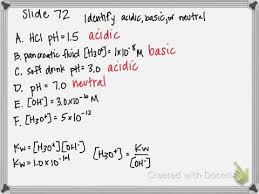 Slide 72 Identify acidic, basic, or neutral
A. HCl pH = 1.5 acidic
B. pancreatic fluid [H₃O⁺] = 1×10⁻⁸ M basic
C. soft drink pH = 3.0 acidic
D. pH = 7.0 neutral
E. [OH⁻] = 3.0×10⁻⁶ M
F. [H₃O⁺] = 5×10⁻¹²
Kw = [H₃O⁺][OH⁻] [H₃O⁺] = Kw / [OH⁻]
Kw = 1.0×10⁻¹⁴
Created with Doceri